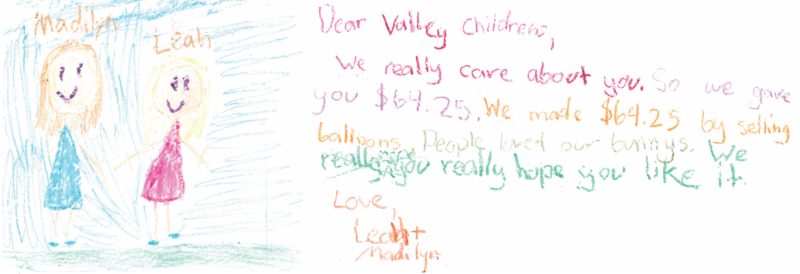 Madilyn
Leah
Dear Valley Childrens,
We really care about you. So we gave
you $64.25. We made $64.25 by selling
balloons. People loved our bunnys. We
really you really hope you like it.
Love,
Leah +
Madilyn